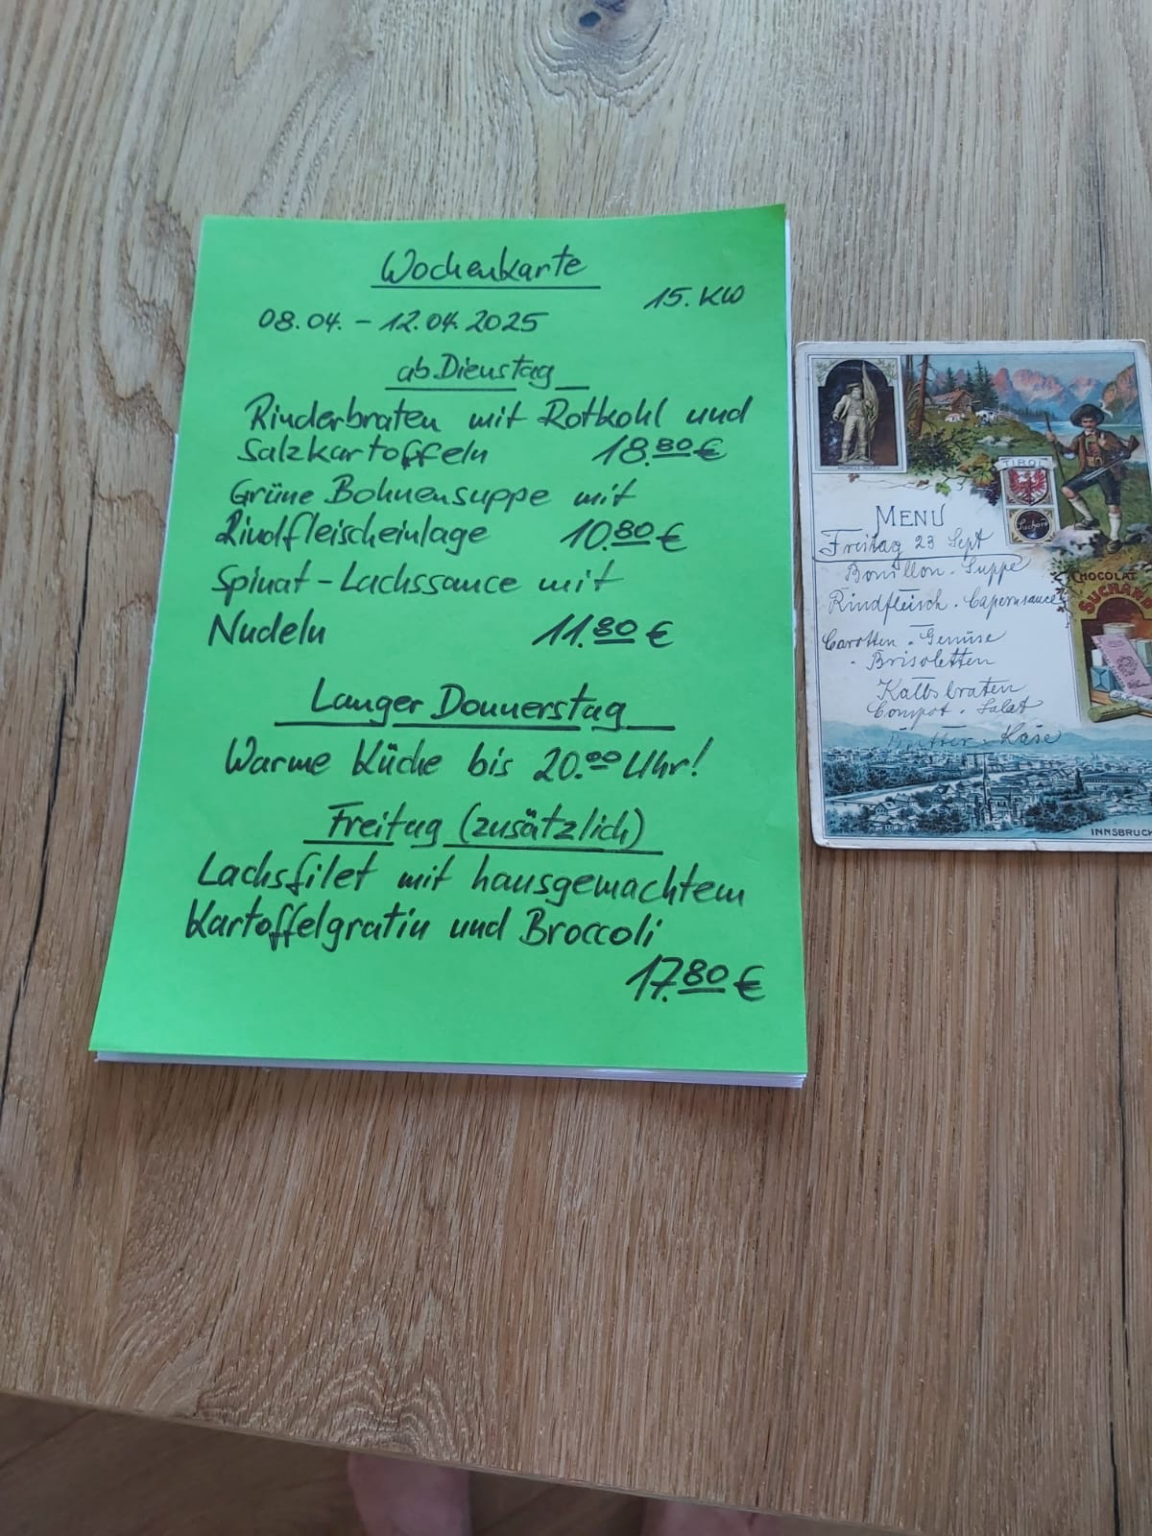 Wochenkarte
15. KW
08.04. - 12.04.2025
ab Dienstag
Rinderbraten mit Rotkohl und
Salzkartoffeln 18.80 €
Grüne Bohnensuppe mit
Rindfleischeinlage 10.80 €
Spinat-Lachssauce mit
Nudeln 11.80 €
Langer Donnerstag
Warme Küche bis 20.00 Uhr!
Freitag (zusätzlich)
Lachsfilet mit hausgemachtem
Kartoffelgratin und Broccoli
17.80 €
TIROL
Suchard
MENU
Freitag 23 Sept
Bouillon - Suppe
Rindfleisch - Capernsauce
Carotten - Gemüse
- Brisoletten
Kalbsbraten
Compot - Salat
Butter - Käse
CHOCOLAT
SUCHARD
INNSBRUCK